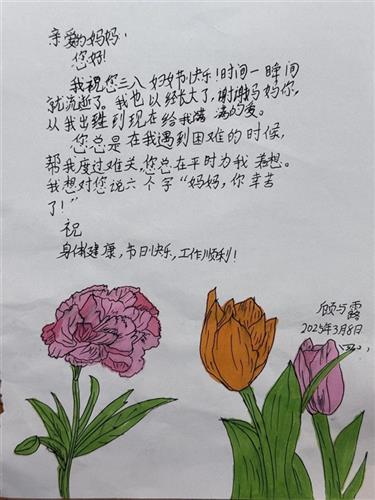 亲爱的妈妈：
您好！
我祝您三八妇女节快乐！时间一瞬间
就流逝了。我也以经长大了，谢谢妈妈你，
从我出生到现在给我满满的爱。
您总是在我遇到困难的时候，
帮我度过难关，您总在平时为我着想。
我想对您说六个字“妈妈，你辛苦
了！”
祝
身体健康，节日快乐，工作顺利！
露
2025年3月8日